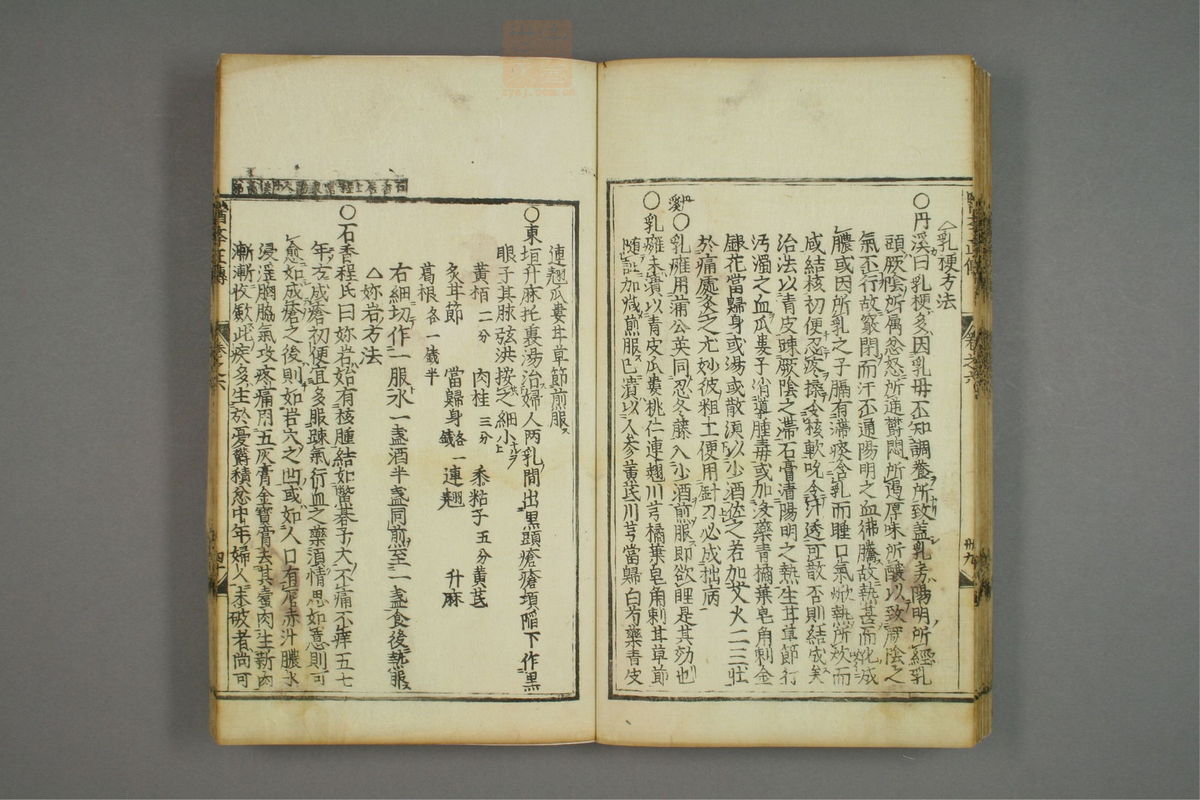 乳硬方法
○丹溪曰乳硬多因乳母不知調養所致盖乳房陽明所經乳
頭厥陰所屬忿怒所逆欝悶所遏厚味所釀以致厥陰之
氣不行故竅閉而汗不通陽明之血沸騰故熱甚而化成
膿或因所乳之子膈有滯痰含乳而睡口氣焮熱所吹而
成結核初便忍疼揉令核軟吮令汁透可散否則結成矣
治法以青皮踈厥陰之滯石膏清陽明之熱生甘草節行
汚濁之血瓜婁子消導腫毒或加沒藥青橘葉皂角刺金
銀花當歸身或湯或散須以少酒佐之若加艾火二三壯
於痛處灸之尤妙彼粗工便用針刀必成拙病
○乳癰用蒲公英同忍冬藤入少酒煎服即欲睡是其効也
○乳癰未潰以青皮瓜婁桃仁連翹川芎橘葉皂角刺甘草節
隨証加减煎服已潰以人参黄芪川芎當歸白芍藥青皮
連翹瓜婁甘草節煎服
○東垣升麻托裏湯治婦人两乳間出黒頭瘡瘡頂陥下作黒
眼子其脉弦洪按之細小
黄栢二分 肉桂三分 黍粘子五分 黄芪
炙甘節 當歸身各一錢 連翹 升麻
葛根各一錢半
右細切作一服水一盞酒半盞同煎至一盞食後熱服
△妳岩方法
○石香程氏曰妳岩始有核腫結如鱉碁子大不痛不痒五七
年方成瘡初便宜多服踈氣行血之藥須情思如意則可
愈如成瘡之後則如岩穴之凹或如人口有唇赤汁膿水
浸淫胸脇氣攻疼痛用五灰膏金寶膏去其蠹肉生新肉
漸漸收歛此疾多生於憂欝積忿中年婦人未破者尚可